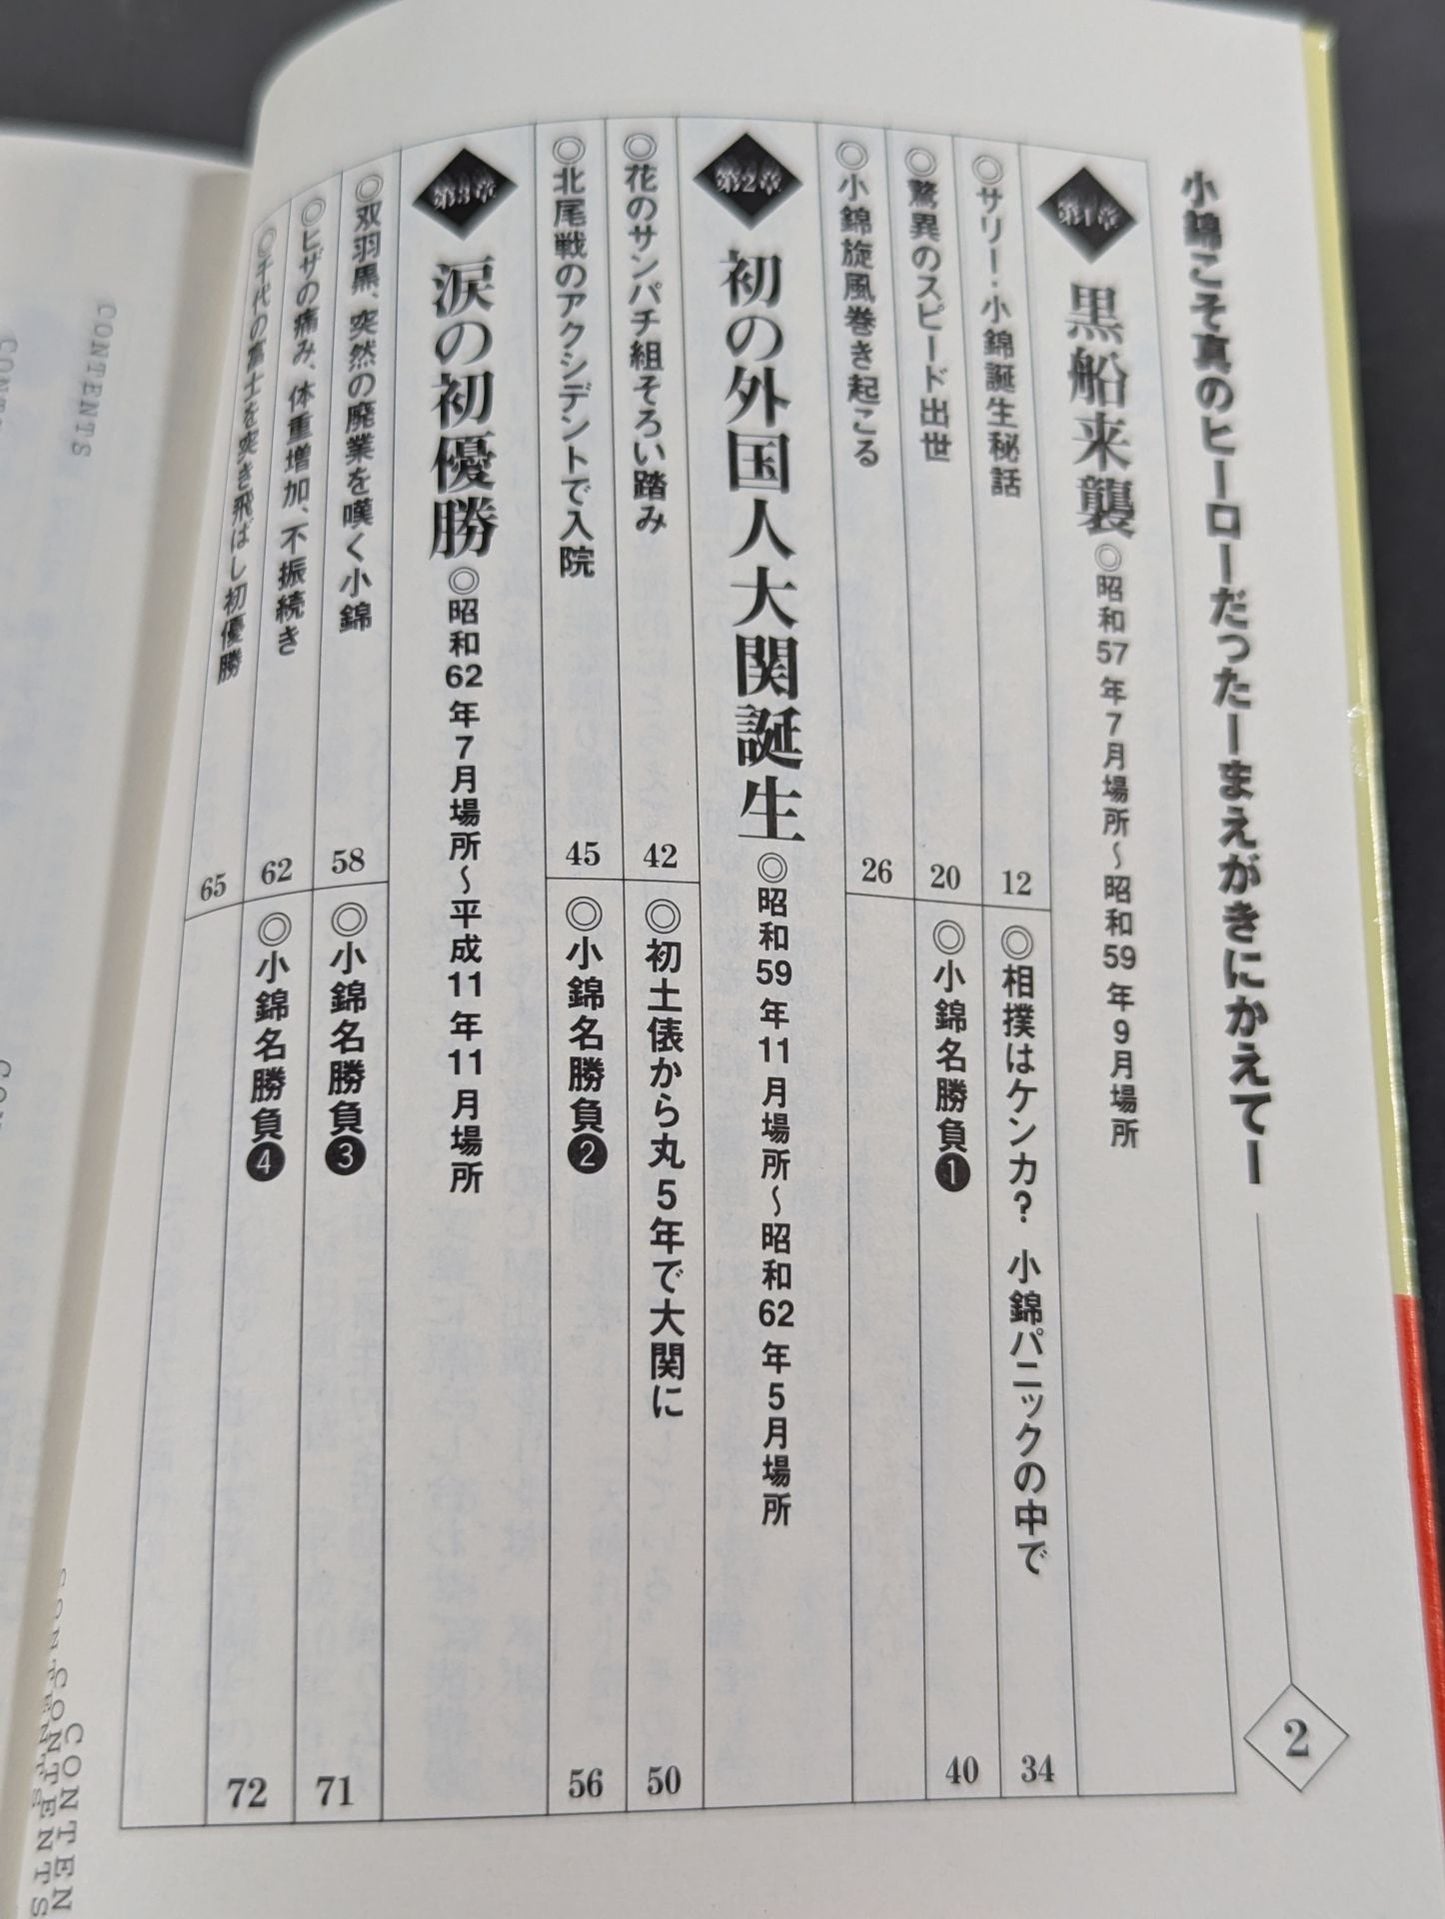 小錦こそ真のヒーローだったーまえがきにかえてー
2
第1章
黒船来襲◎昭和57年7月場所〜昭和59年9月場所
◎サリー・小錦誕生秘話 12
◎驚異のスピード出世 20
◎小錦旋風巻き起こる 26
◎相撲はケンカ？ 小錦パニックの中で 34
◎小錦名勝負❶ 40
第2章
初の外国人大関誕生◎昭和59年11月場所〜昭和62年5月場所
◎花のサンパチ組そろい踏み 42
◎北尾戦のアクシデントで入院 45
◎初土俵から丸5年で大関に 50
◎小錦名勝負❷ 56
第3章
涙の初優勝◎昭和62年7月場所〜平成11年11月場所
◎双羽黒、突然の廃業を嘆く小錦 58
◎ヒザの痛み、体重増加、不振続き 62
◎千代の富士を突き飛ばし初優勝 65
◎小錦名勝負❸ 71
◎小錦名勝負❹ 72
CONTENTS
CONTENTS
CONTENTS